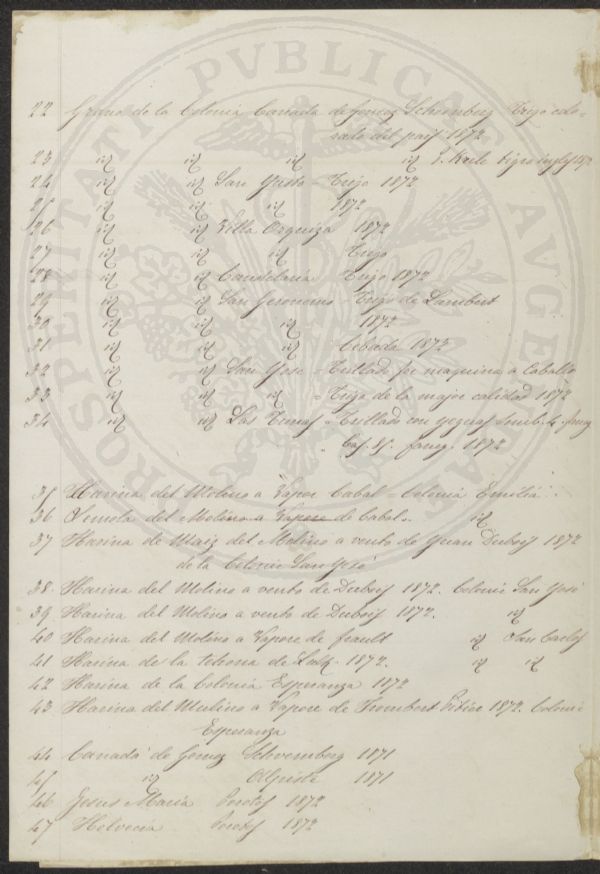 PROSPERITATI PVBLICAE AVGENDAE
22 Grano de la Colonia Cañada de Gomez Schoenberg Trigo colo-
rado del pais 1872
23 id id id id
24 id id San Justo = Trigo 1872
25 id id id 1872
26 id id Villa Orquiza 1872
27 id id id Trigo
28 id id Candelaria Trigo 1872
29 id id San Geronimo = Trigo de Lambert
30 id id id 1872
31 id id id Cebada 1872
32 id id San Jose = Trillado por maquina a Caballo
33 id id id = Trigo de la major calidad 1872
34 id id Las Tunas = Trillado con yeguas
1872
35 Harina del Molino a Vapor Cabal = Colonia Emilia
36 Semola del Molino a Vapore de Cabal = id
37 Harina de Maiz del Molino a vento de Juan Dubois 1872
de la Colonia San José
38 Harina del Molino a vento de Dubois 1872. Colonia San José
39 Harina del Molino a vento de Dubois 1872. id
40 Harina del Molino a Vapore de id San Carlos
41 Harina de la tahona de 1872. id id
42 Harina de la Colonia Esperanza 1872
43 Harina del Mulino a Vapore de 1872. Colonia
Esperanza
44 Canada de Gomez Schoemberg 1871
45 id Alpiste 1871
46 Jesus Maria Porotos 1872
47 Helvecia Porotos 1872